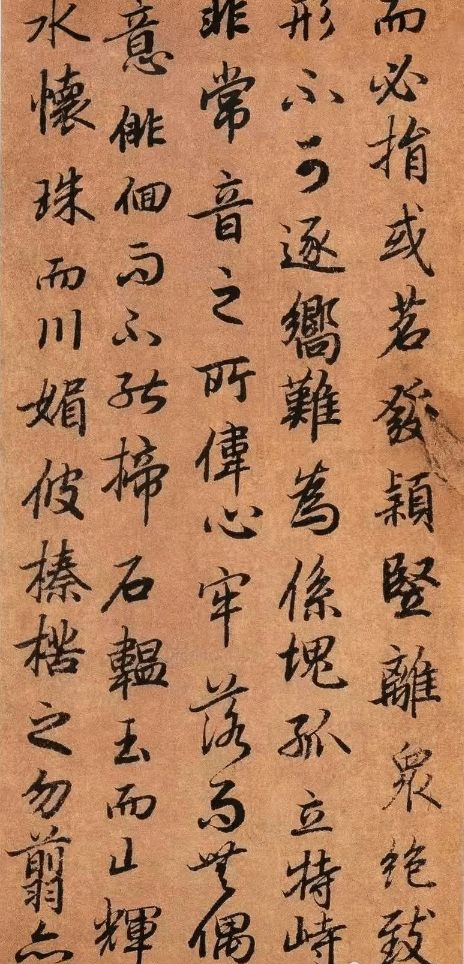 而必捐或苕發穎豎離眾絕致
形不可逐嚮難為係塊孤立特峙
非常音之所偉心牢落而無偶
意俳佪而不能揥石輼玉而山輝
水懷珠而川媚彼榛楛之勿翦亦